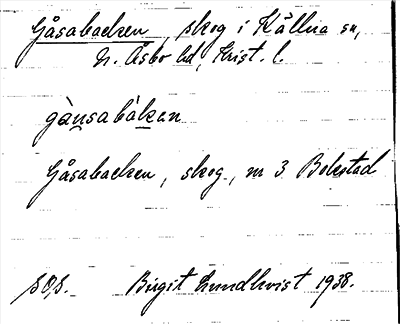 Gåsabacken, skog i Källna sn,
N. Åsbo hd, Krist. l.
gànsabàkan
Gåsabacken, skog, nr 3 Bokestad
SOS. Birgit Lundkvist 1938.